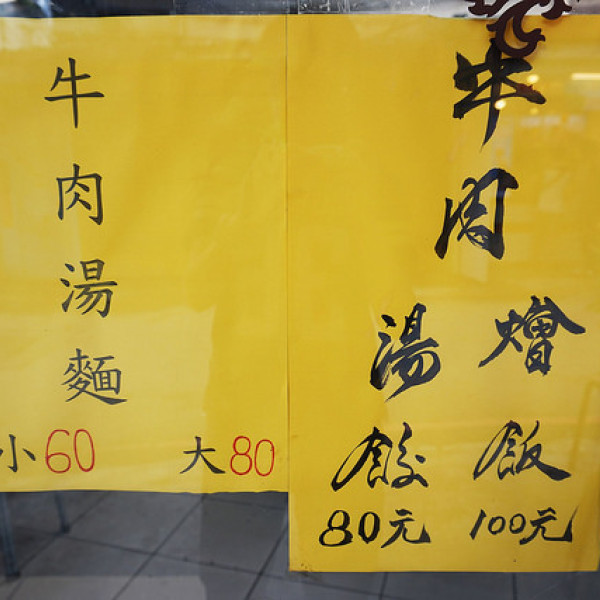 牛肉湯麵
小60
大80
牛肉
燴飯
100元
湯餃
80元